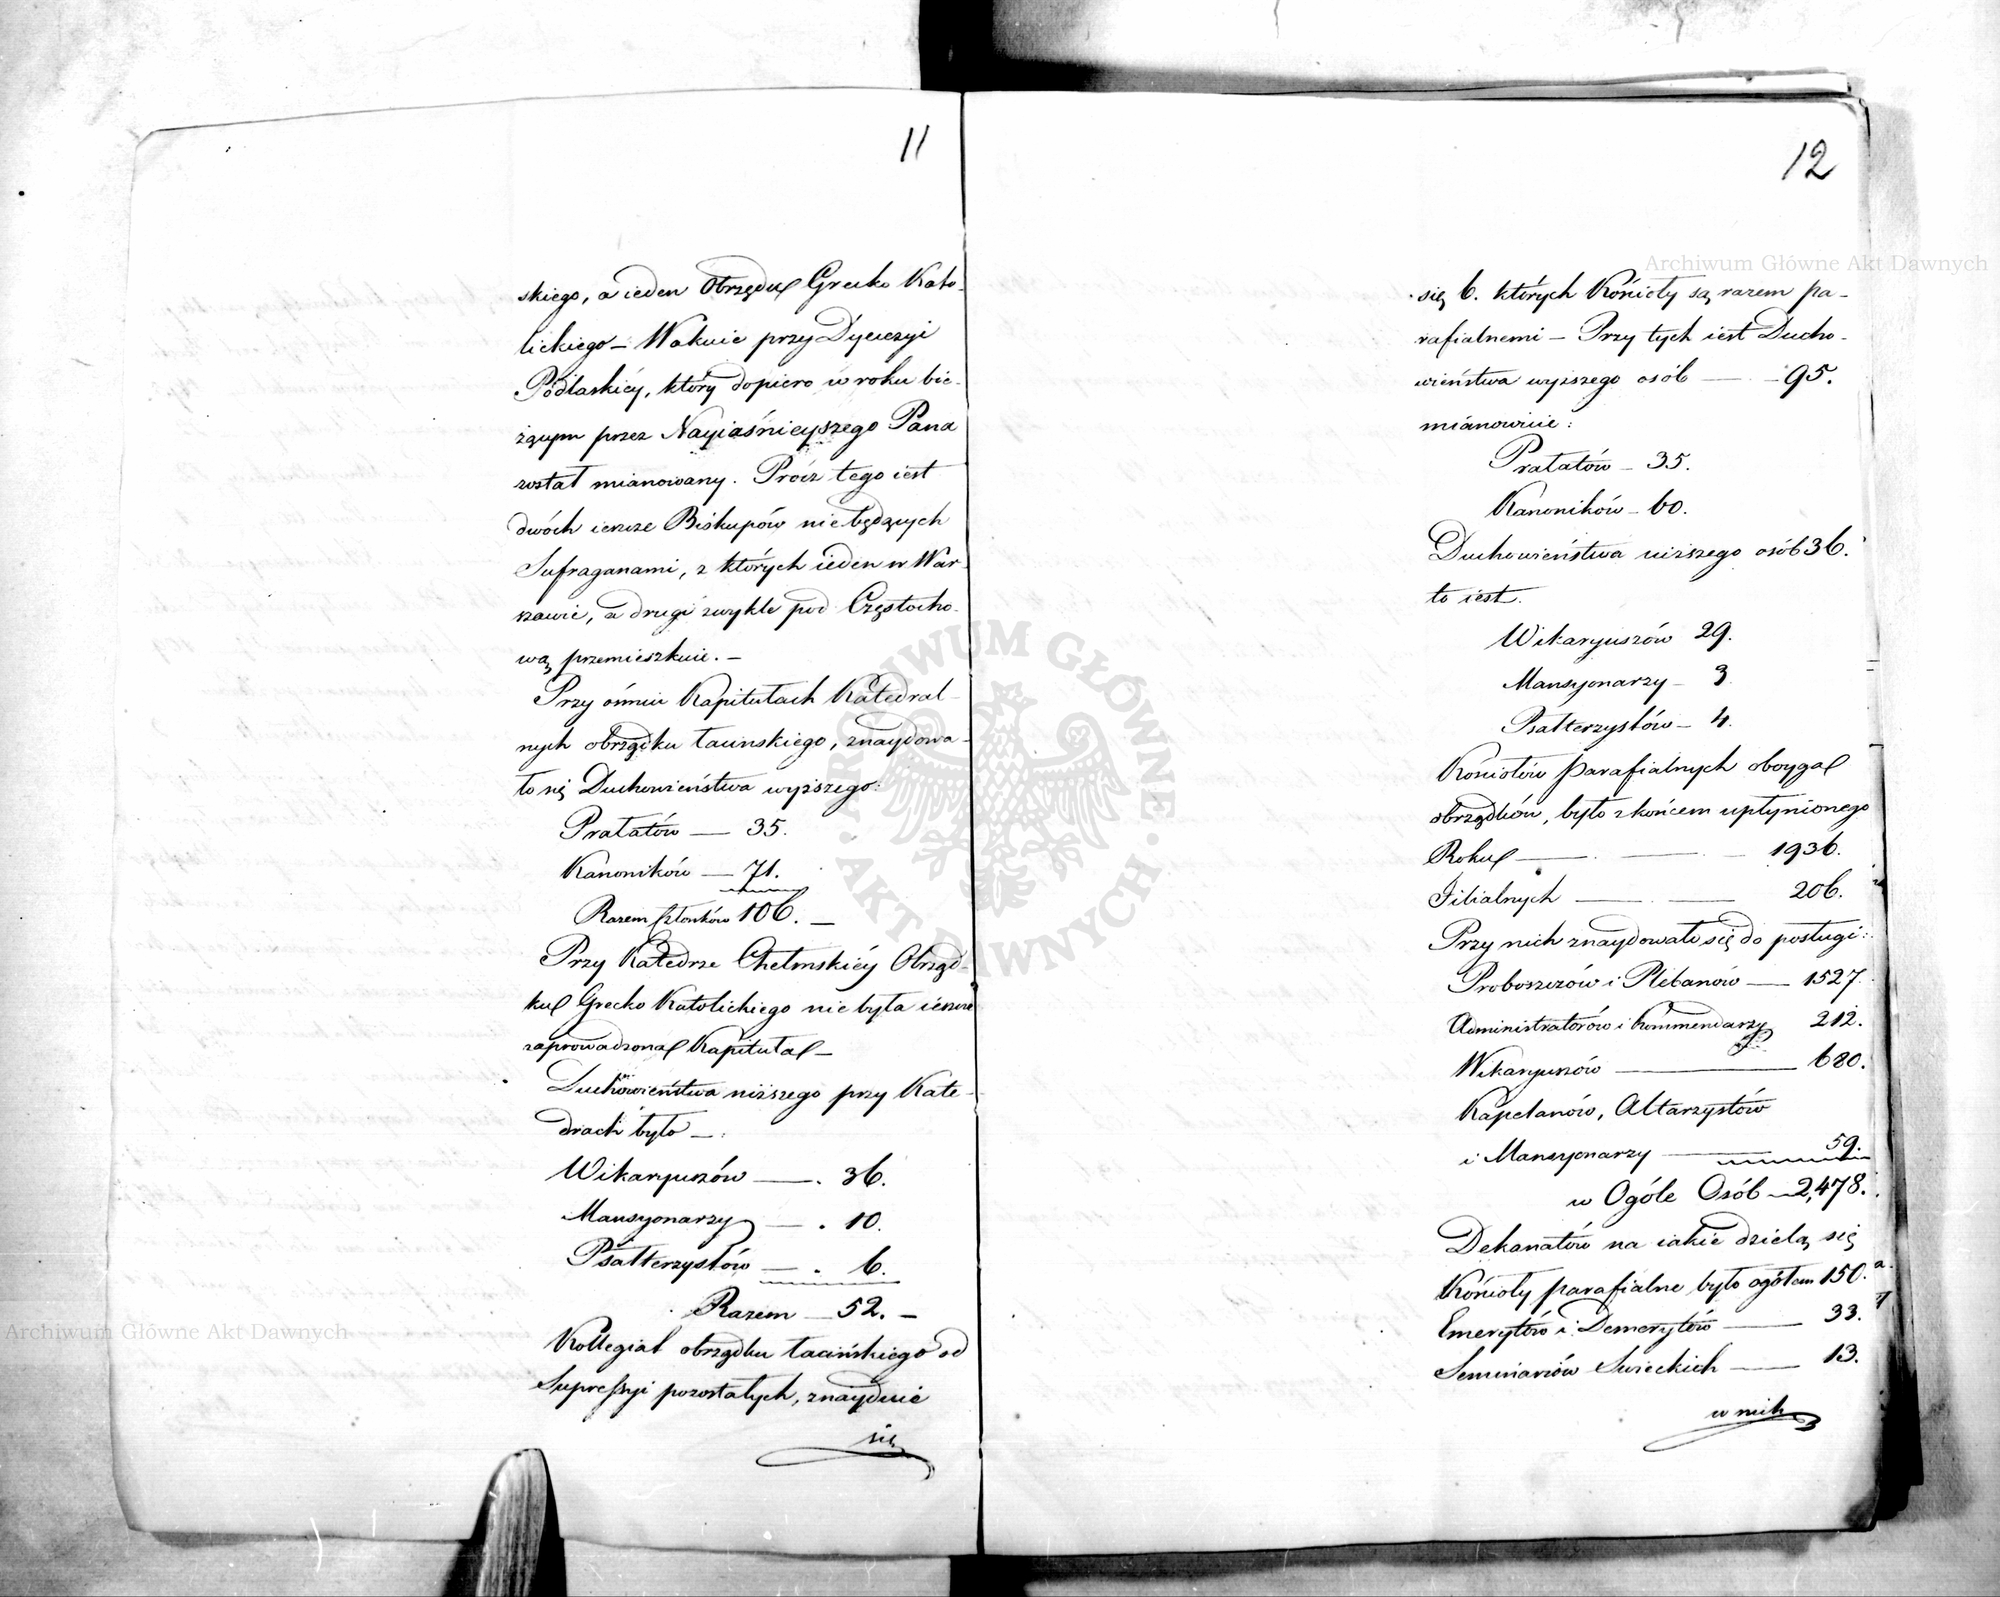 11
skiego, a ieden Obrządku Grecko Kato-
lickiego – Wakuie przy Dyecezyi
Podlaskiéy, który dopiero w roku bie-
żącym przez Nayiaśnieyszego Pana
został mianowany. Prócz tego iest
dwóch ieszcze Biskupów nie będących
Sufraganami, z których ieden w War-
szawie, a drugi zwykle pod Częstocho-
wą przemieszkuie. –
Przy óśmiu Kapitułach Katedral-
nych obrządku łacinskiego, znaydowa-
ło się Duchowieństwa wyższego:
Prałatów — 35.
Kanoników — 71.
Razem Członków 106. –
Przy Katedrze Chełmskiéy Obrząd-
ku Grecko Katolickiego nie była ieszcze
zaprowadzona Kapituła –
Duchowieństwa niższego przy Kate-
drach było –:
Wikaryuszów — . 36.
Mansyonarzy — . 10.
Psałterzystów — . 6.
Razem — 52. –
Kollegiat obrządku łacińskiego od
Supressyi pozostałych, znayduie
się
12
się 6. których Kościoły są razem pa-
rafialnemi – Przy tych iest Ducho-
wieństwa wyższego osób — 95.
mianowicie:
Prałatów – 35.
Kanoników – 60.
Duchowieństwa niższego osób 36.
to iest.
Wikaryuszów 29.
Mansyonarzy – 3
Psałterzystów – 4.
Kościołów parafialnych oboyga
obrządków, było z końcem upłynionego
Roku — 1936.
Filialnych — 206.
Przy nich znaydowało się do posługi:
Proboszczów i Plebanów — 1527.
Administratorów i Kommendarzy 212.
Wikaryuszów — 680.
Kapelanów, Altarzystów
i Mansyonarzy — 59.
w Ogóle Osób – 2,478.
Dekanatów na iakie dzielą się
Kościoły parafialne było ogółem 150.
Emerytów i Demerytów — 33.
Seminariów Swieckich — 13.
w nich
Archiwum Główne Akt Dawnych
Archiwum Główne Akt Dawnych
ARCHIWUM GŁÓWNE · AKT DAWNYCH ·